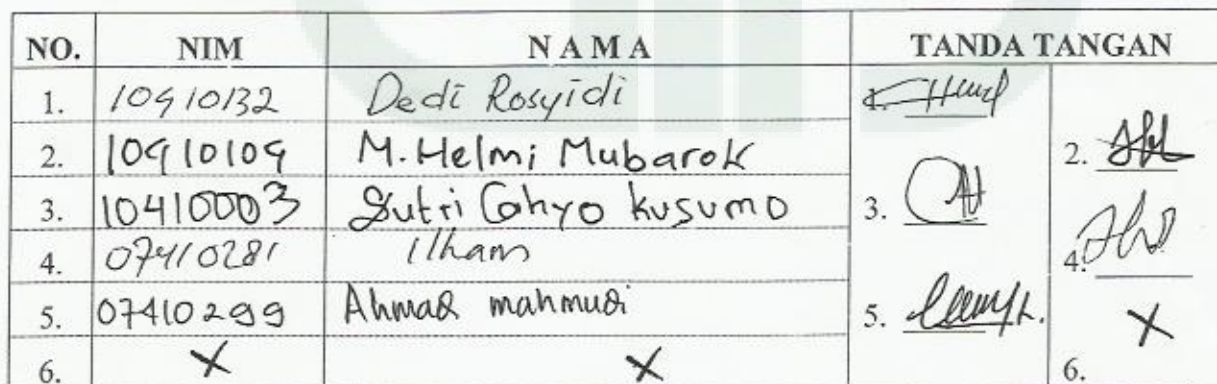 NO. NIM N A M A TANDA TANGAN
1. 10410132 Dedi Rosyidi 1.
2. 10410109 M. Helmi Mubarok 2.
3. 10410003 Sutri Cahyo Kusumo 3.
4. 07410281 ilham 4.
5. 07410299 Ahmad mahmudi 5.
6. X X 6. X